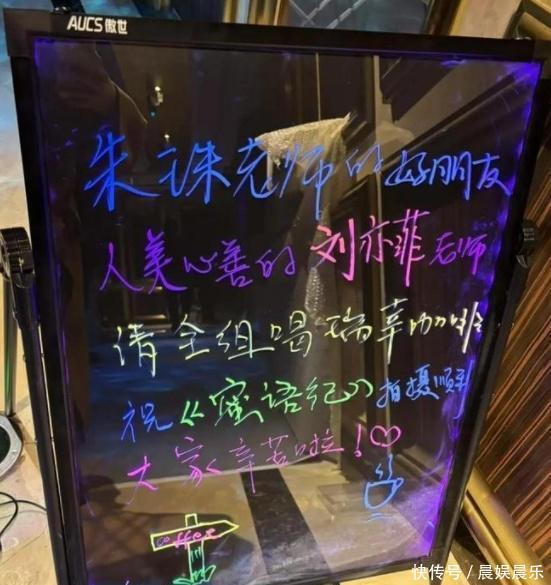 AUCS 傲世
朱珠老师的好朋友
人美心善的 刘亦菲老师
请全组喝瑞幸咖啡
祝《蜜语纪》拍摄顺利
大家辛苦啦！♡
coffee
快传号／晨娱晨乐